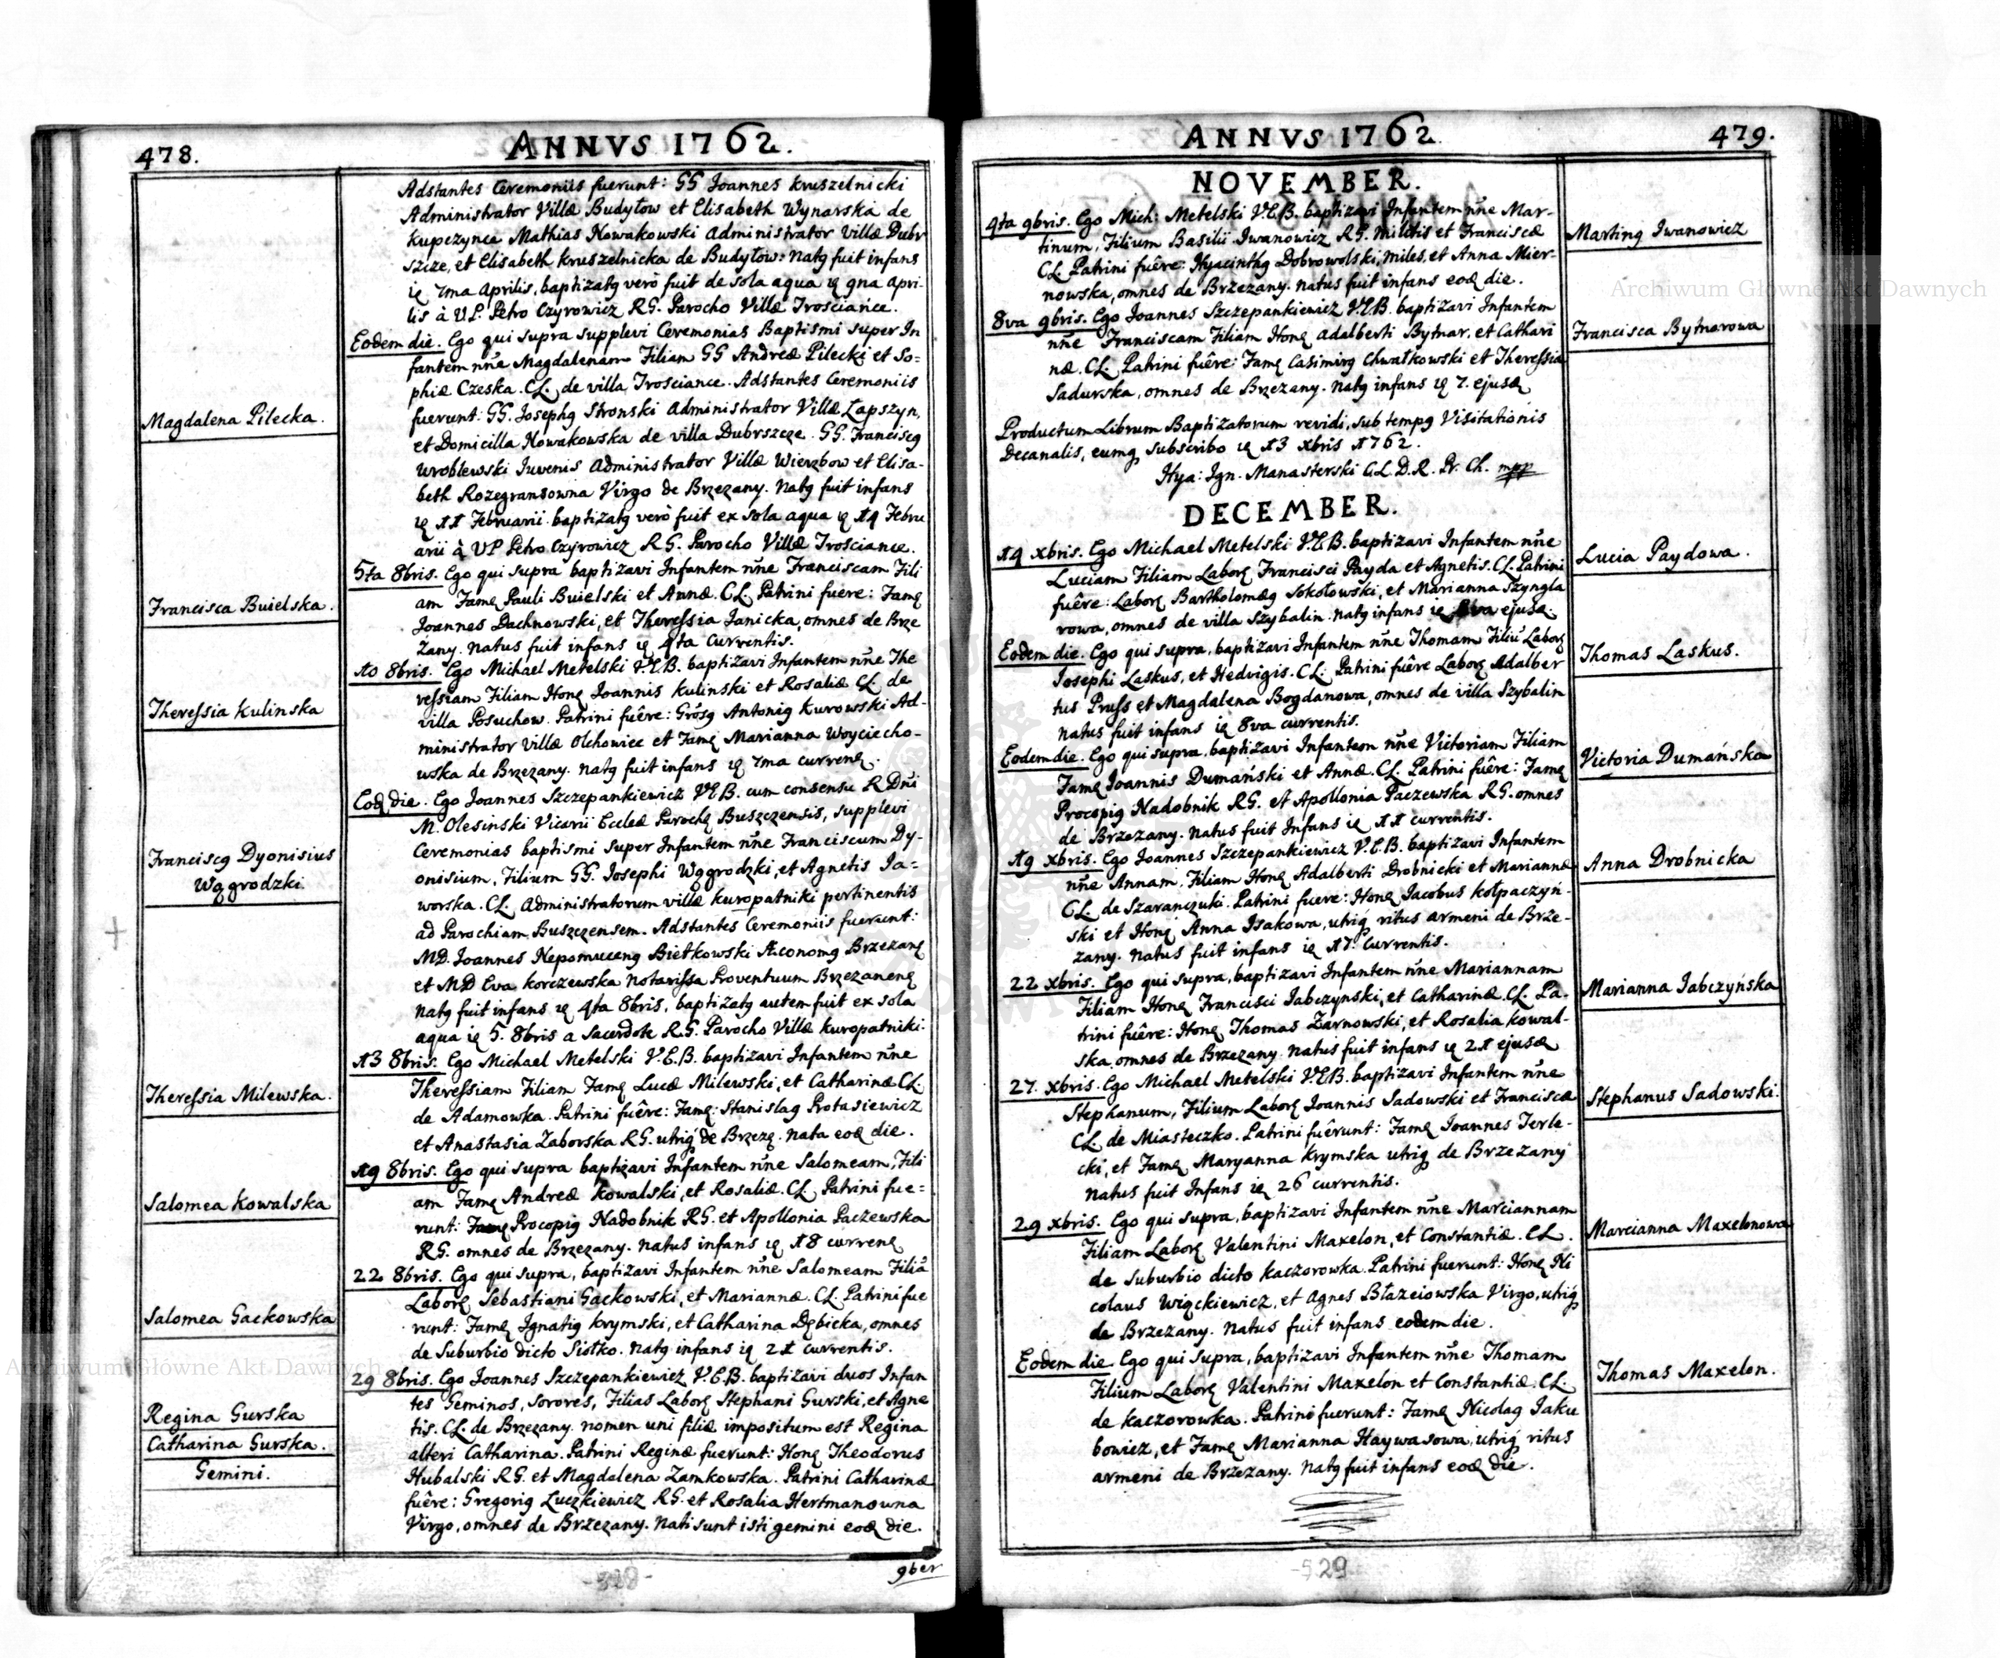 478.
ANNVS 1762.
Adstantes Ceremoniis fuerunt: GG Joannes Kruszelnicki
Administrator Villæ Budyłow et Elisabeth Wynarska de
Kupczynce Mathias Nowakowski Administrator Villæ Dubr
szcze, et Elisabeth Kruszelnicka de Budyłow: Natg fuit infans
ię 7ma Aprilis, baptizatg verò fuit de sola aqua ię 9na Apri
lis à VP. Petro Czyrowicz RG. Parocho Villæ Trosciance.
Eodem die. Ego qui supra supplevi Ceremonias Baptismi super In
fantem nñe Magdalenam Filiam GG Andreæ Pilecki et So=
phiæ Czeska. CL. de villa Trosciance. Adstantes Ceremoniis
Magdalena Pilecka.
fuerunt: GG. Josephg Stronski Administrator Villæ Łapszyn,
et Domicilla Nowakowska de villa Dubrszcze. GG. Franciscg
Wroblewski Juvenis Administrator Villæ Wierzbow et Elisa-
beth Rozegransowna Virgo de Brzezany. Natg fuit infans
ię 11 Februarii. baptizatg verò fuit ex sola aqua ię 14 Febru
arii à VP Petro Czyrowicz RG. Parocho Villæ Trosciance.
5ta 8bris. Ego qui supra baptizavi Infantem nñe Franciscam Fili
Francisca Buielska.
am Famę Pauli Buielski et Annæ. CL. Patrini fuere: Famę
Joannes Dachnowski, et Theressia Janicka, omnes de Brze
żany. Natus fuit infans ię 4ta Currentis.
10 8bris. Ego Michael Metelski V.E.B. baptizavi Infantem nñe The
ressiam Filiam Honę Joannis Kulinski et Rosaliæ CL de
Theressia Kulinska
villa Posuchow. Patrini fuêre: Grõsg Antonig Kurowski Ad-
ministrator Villæ Olchowice et Famę Marianna Woyciecho-
wska de Brzezany. Natg fuit infans ię 7ma currenę.
Eoę die. Ego Joannes Szczepankiewicz V.E.B. cum consensu R Dñi
M. Olesinski Vicarii Eccleæ Parochę Buszczensis, supplevi
Ceremonias baptismi super Infantem nñe Franciscum Dy-
Franciscg Dyonisius
Wągrodzki.
onisium, Filium GG. Josephi Wągrodzki, et Agnetis Ja=
worska. CL. Administratorum villæ Kuropatniki pertinentis
ad Parochiam Buszczensem. Adstantes Ceremoniis fuerunt:
MD. Joannes Nepomuceng Biełkowski Æconomg Brzezanę
et MD Eva Korczewska Notarissa Proventuum Brzezanenę
Natg fuit infans ię 4ta 8bris, baptizatg autem fuit ex sola
aqua ię 5. 8bris a Sacerdote R.G. Parocho Villæ Kuropatniki.
13 8bris. Ego Michael Metelski V.E.B. baptizavi Infantem nñe
Theressia Milewska.
Theressiam Filiam Famę Lucæ Milewski, et Catharinæ CL.
de Adamowka. Patrini fuêre: Famę: Stanislag Protasiewicz
et Anastasia Zaborska RG. utrig de Brzezę. Nata eoę die.
19 8bris. Ego qui supra baptizavi Infantem nñe Salomeam, Fili
Salomea Kowalska
am Famę Andreæ Kowalski, et Rosaliæ. CL. Patrini fue=
runt: Famę Procopig Nadobnik RG. et Apollonia Paczewska
RG. omnes de Brzezany. Natus infans ię 18 currenę
22 8bris. Ego qui supra, baptizavi Infantem nñe Salomeam Filiã
Salomea Gackowska
Laborę Sebastiani Gackowski, et Mariannæ. CL. Patrini fue
runt: Famę Ignatig Krymski, et Catharina Dębicka, omnes
de Suburbio dicto Siołko. Natg infans ię 21 currentis.
29 8bris. Ego Joannes Szczepankiewicz V.E.B. baptizavi duos Infan
tes Geminos, Sorores, Filias Laborę Stephani Gurski, et Agne
Regina Gurska
tis. CL. de Brzezany. nomen uni filiæ impositum est Regina
Catharina Gurska.
alteri Catharina. Patrini Reginæ fuerunt: Honę Theodorus
Gemini.
Hubalski RG. et Magdalena Zamkowska. Patrini Catharinæ
fuêre: Gregorig Luczkiewicz RG. et Rosalia Hertmanowna
Virgo, omnes de Brzezany. Nati sunt isti gemini eoę die.
9ber
ANNVS 1762
479.
NOVEMBER.
4ta 9bris. Ego Mich: Metelski V.E.B. baptizavi Infantem nñe Mar-
Marting Iwanowicz
tinum, Filium Basilii Iwanowicz RG. Militis et Franciscæ
CL. Patrini fuêre: Hyacinthg Dobrowolski, miles, et Anna Mier-
nowska, omnes de Brzezany. natus fuit infans eoę die.
8va 9bris. Ego Joannes Szczepankiewicz V.E.B. baptizavi Infantem
Francisca Bytnarowa
nñe Franciscam Filiam Honę Adalberti Bytnar. et Cathari
næ. CL. Patrini fuêre: Famę Casimirg Chwałkowski et Theressia
Sadurska, omnes de Brzezany. Natg infans ię 7. ejusę
Productum Librum Baptizatorum revidi, sub tempg Visitationis
Decanalis, eumq subscribo ię 13 Xbris 1762.
Hya: Ign. Manasterski C.L.D.R. Pr. Ch. mpp
DECEMBER.
14 Xbris. Ego Michael Metelski V.E.B. baptizavi Infantem nñe
Lucia Paydowa.
Luciam Filiam Laborę Francisci Payda et Agnetis. CL. Patrini
fuêre: Laborę Bartholomęg Sokołowski, et Marianna Szyngla
rowa, omnes de villa Szybalin. Natg infans ię 8va ejusę.
Eodem die. Ego qui supra, baptizavi Infantem nñe Thomam Filiũ Laborę
Thomas Laskus.
Josephi Laskus, et Hedvigis. CL. Patrini fuêre Laborę Adalber
tus Pruss et Magdalena Bogdanowa, omnes de villa Szybalin
natus fuit infans ię 8va currentis.
Eodem die. Ego qui supra, baptizavi Infantem nñe Victoriam Filiam
Victoria Dumańska
Famę Joannis Dumański et Annæ. CL. Patrini fuêre: Famę
Procopig Nadobnik RG. et Apollonia Paczewska RG. omnes
de Brzezany. Natus fuit Infans ię 11 currentis.
19 Xbris. Ego Joannes Szczepankiewicz V.E.B. baptizavi Infantem
Anna Drobnicka
nñe Annam. Filiam Honę Adalberti Drobnicki et Mariannæ
CL. de Szaranczuki. Patrini fuere: Honę Jacobus Kołpaczyń-
ski et Honę Anna Isakowa, utrig ritus armeni de Brze-
zany. Natus fuit infans ię 17. Currentis.
22 Xbris. Ego qui supra, baptizavi Infantem nñe Mariannam
Marianna Jabczyńska
Filiam Honę Francisci Jabczynski, et Catharinæ. CL. Pa-
trini fuêre: Honę Thomas Żarnowski, et Rosalia Kowal-
ska omnes de Brzezany. Natus fuit infans ię 21 ejusę
27. Xbris. Ego Michael Metelski V.E.B. baptizavi Infantem nñe
Stephanus Sadowski.
Stephanum, Filium Laborę Joannis Sadowski et Franciscæ
CL. de Miasteczko. Patrini fuêrunt: Famę Joannes Terle-
cki, et Famę Maryanna Krymska utrig de Brzezany
Natus fuit Infans ię 26 currentis.
29 Xbris. Ego qui supra, baptizavi Infantem nñe Marciannam
Marcianna Maxelonowa
Filiam Laborę Valentini Maxelon, et Constantiæ. CL.
de Suburbio dicto Kaczorowka. Patrini fuerunt: Honę Ni
colaus Więckiewicz, et Agnes Błazeiowska Virgo, utrig
de Brzezany. Natus fuit infans eodem die.
Eodem die. Ego qui supra, baptizavi Infantem nñe Thomam
Thomas Maxelon.
Filium Laborę Valentini Maxelon et Constantiæ. CL.
de Kaczorowka. Patrini fuerunt: Famę Nicolag Jaku
bowicz, et Famę Marianna Haywasowa, utrig ritus
armeni de Brzezany. Natg fuit infans eoę die.
-528-
-529-
Archiwum Główne Akt Dawnych
Archiwum Główne Akt Dawnych